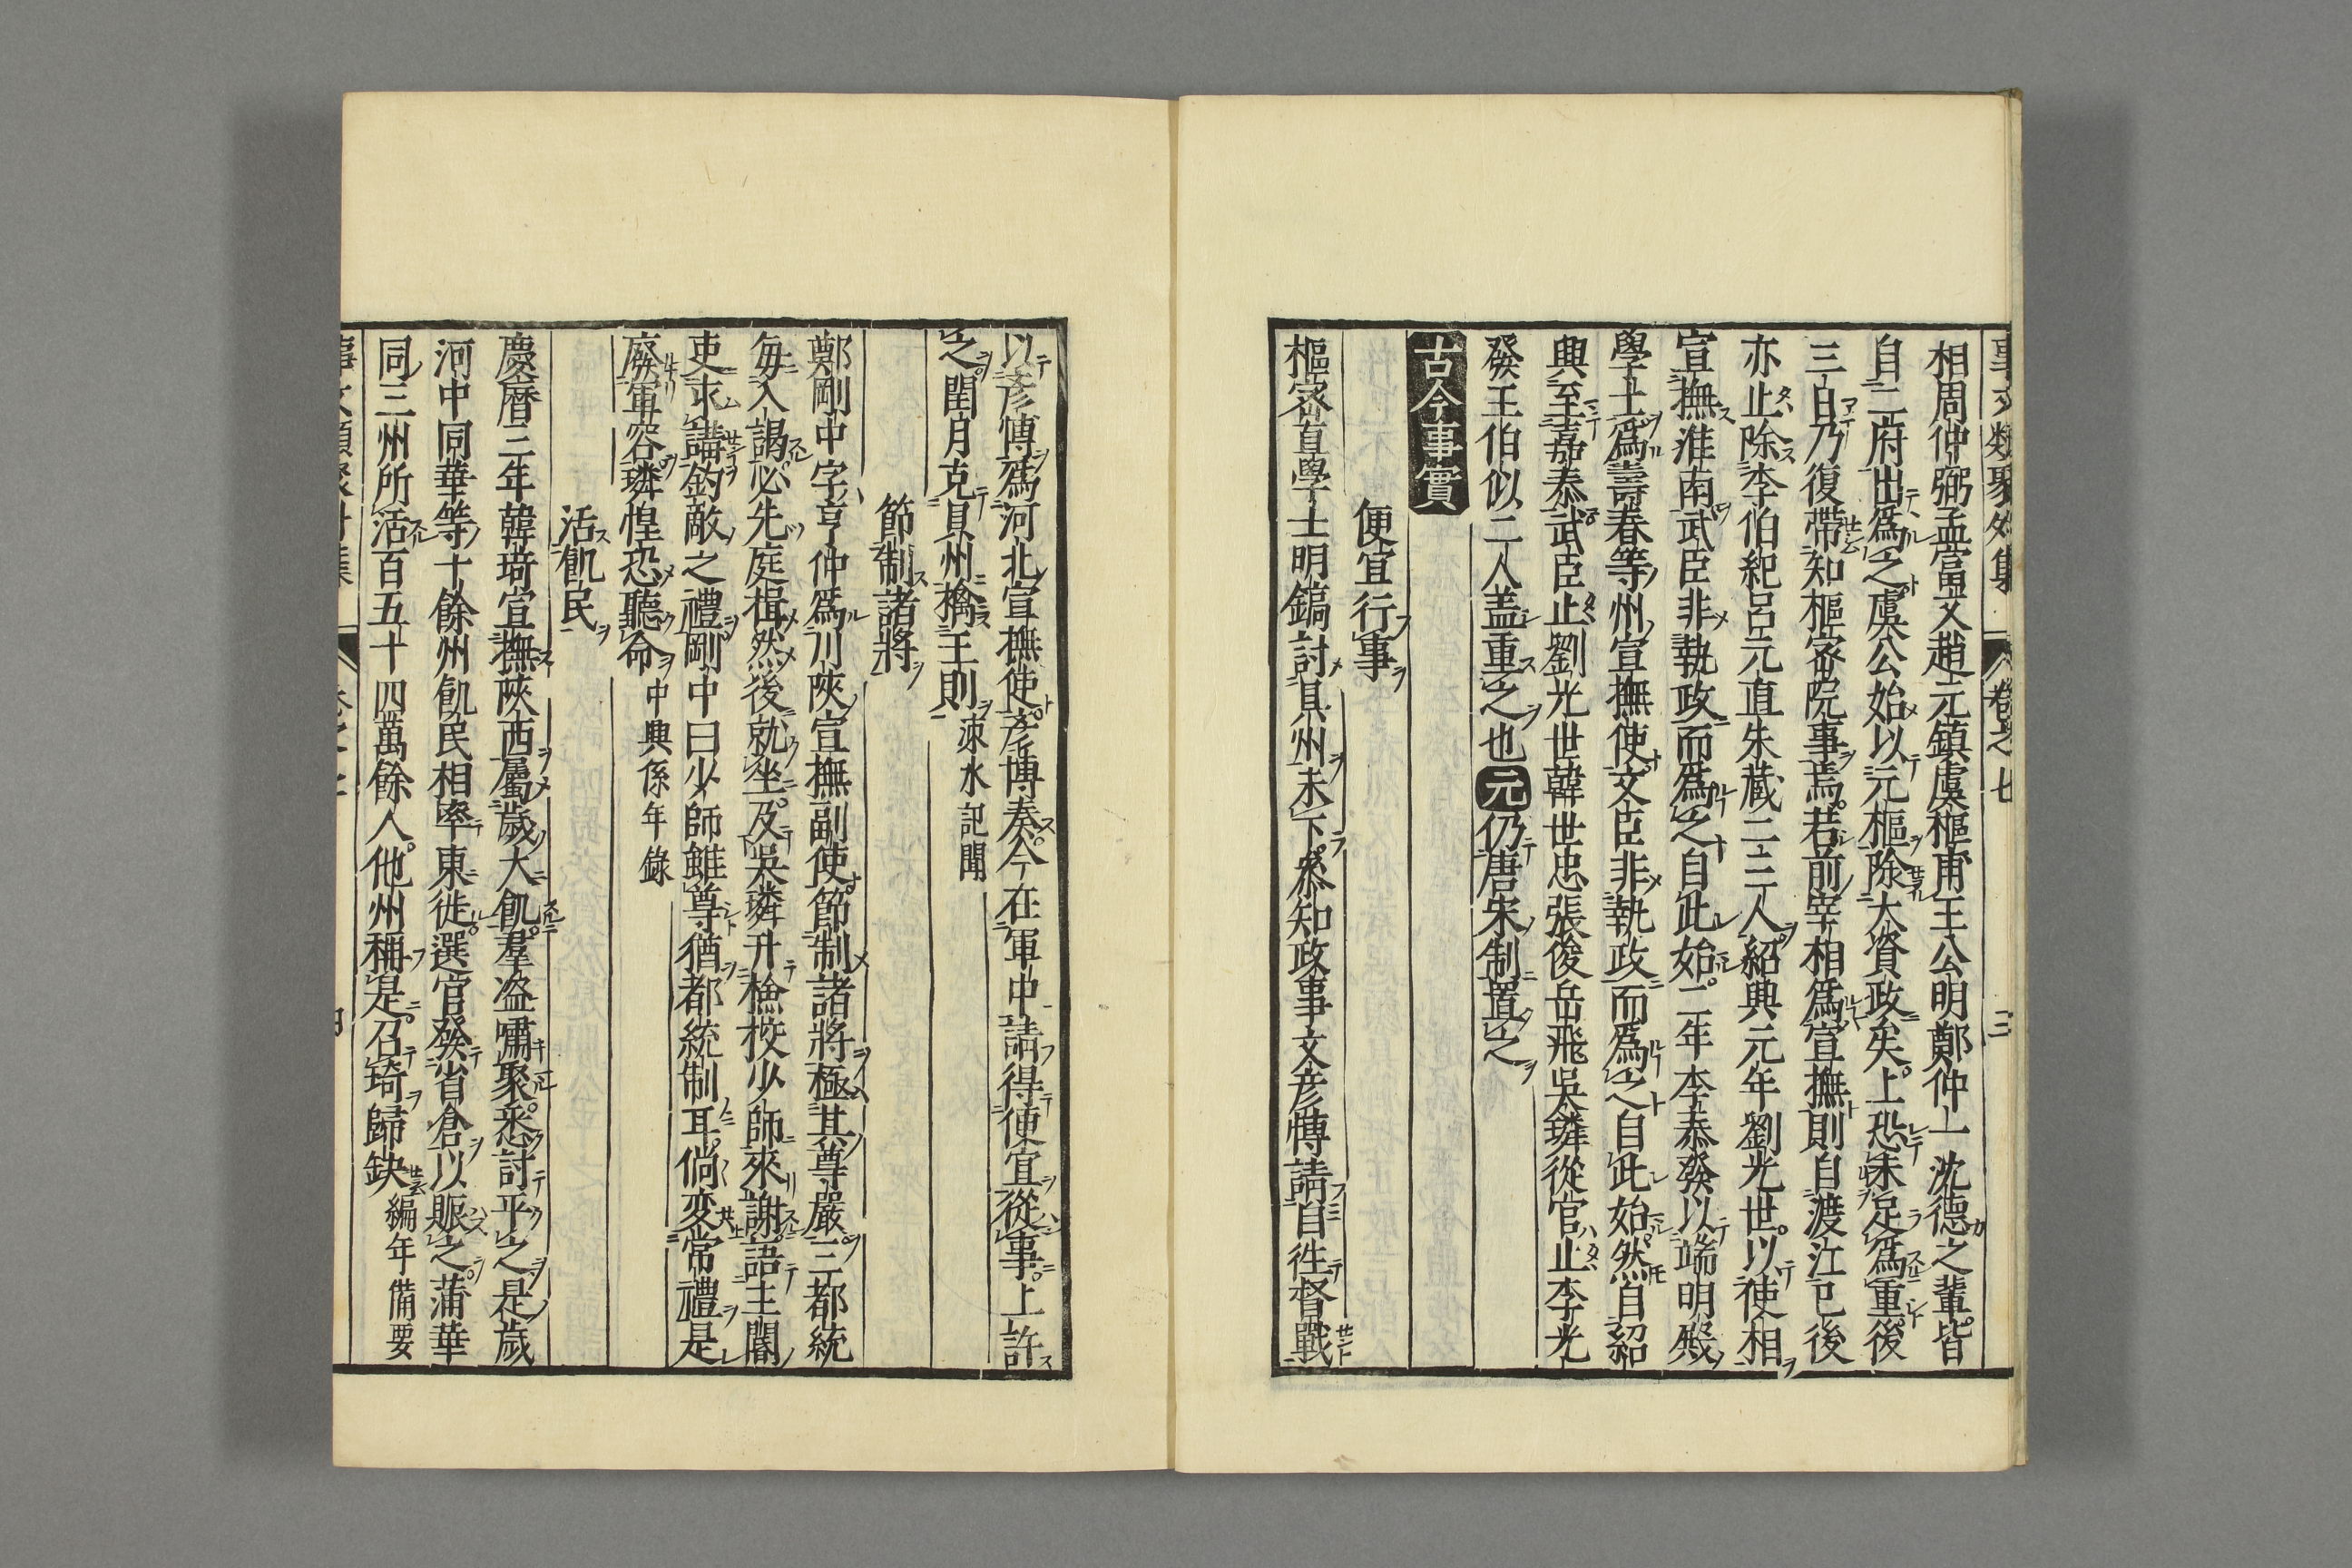 事文類聚外集 卷之七 三
相周仲弼孟富文趙元鎮虞樞甫王公明鄭仲一沈德之輩皆
自二府出爲之虞公始以元樞除大資政矣上恐未足爲重後
三日乃復帶知樞密院事焉若前宰相爲宣撫則自渡江已後
亦止除李伯紀呂元直朱藏一三人紹興元年劉光世以使相
宣撫淮南武臣非執政而爲之自此始二年李泰發以端明殿
學士爲壽春等州宣撫使文臣非執政而爲之自此始然自紹
興至嘉泰武臣止劉光世韓世忠張俊岳飛吳璘從官止李光
發王伯似二人盖重之也元仍唐宋制置之
古今事實
便宜行事
樞密直學士明鎬討貝州未下叅知政事文彦愽請自徃督戰
以彦愽爲河北宣撫使彦博奏今在軍中請得便宜從事上許
之閏月克貝州擒王則 涑水記聞
節制諸將
鄭剛中字亨仲爲川陝宣撫副使節制諸將極其尊嚴三都統
毎入謁必先庭揖然後就坐及吳璘升檢校少師來謝語主閽
吏求講鈞敵之禮剛中曰少師雖尊猶都統制耳倘変常禮是
廢軍容璘惶恐聽命 中興係年錄
活飢民
慶曆三年韓琦宣撫陝西屬歲大飢羣盗嘯聚悉討平之是歲
河中同華等十餘州飢民相率東徙選官發省倉以賑之蒲華
同三州所活百五十四萬餘人他州稱是召琦歸缺 編年備要